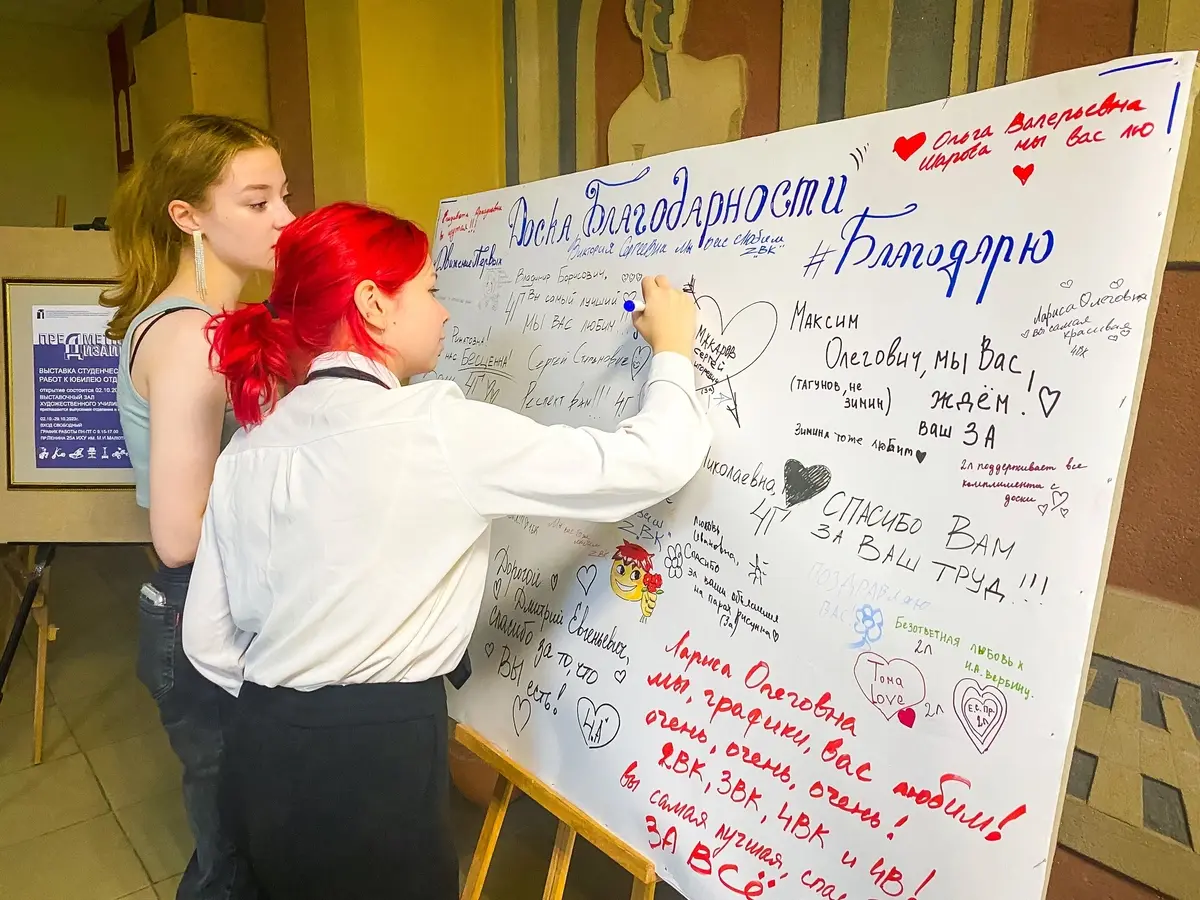 Доска Благодарности
#Благодарю
Ольга Валерьевна
Шарова мы вас лю
Движение Первых
Виктория Сергеевна мы вас любим
2ВК
Владимир Борисович,
4Г Вы самый лучший
МЫ ВАС ЛЮБИМ
Сергей
Респект вам!!! 4Г
МАКАРОВ
СЕРГЕЙ
(3А)
Максим
Олегович, мы Вас
ждём!
(ТАГУНОВ, не
ЗИМИН)
Ваш 3А
Зимина тоже любит
Лариса Олеговна
вы самая
красивая
4ВК
2л поддерживает все
комплименты с
доски
Николаевна,
4Г
СПАСИБО Вам
ЗА ВАШ ТРУД!!!
2.ВК
Любовь
Ивановна,
Спасибо
за ваши объяснения
на парах рисунка
(3а)
ПОЗДРАВЛЯЮ
ВАС
Безответная любовь к
2л
И.А. Вербину.
Тома
Love
2л
Е.С. Пр.
2л
Дорогой
Дмитрий Евгеньевич,
Спасибо за то, что
Вы есть!
4.А
Лариса Олеговна
мы, графики, вас любим!
очень, очень, очень!
2ВК, 3ВК, 4ВК и 4В!
вы самая лучшая,
ЗА ВСЁ
ВЫСТАВКА СТУДЕНЧЕС
РАБОТ К ЮБИЛЕЮ ОТД
ВЫСТАВОЧНЫЙ ЗАЛ
ХУДОЖЕСТВЕННОГО УЧИЛИ
ВХОД СВОБОДНЫЙ